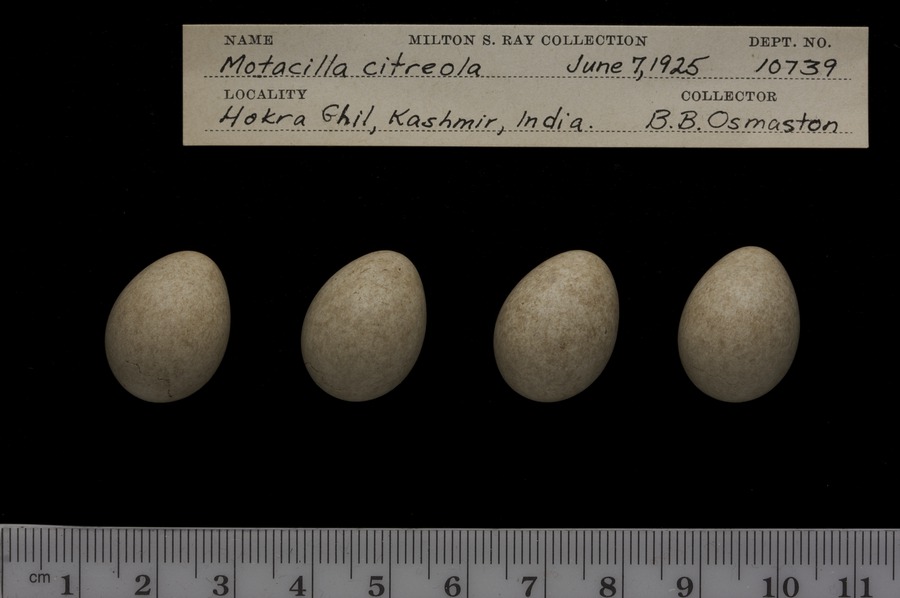 NAME MILTON S. RAY COLLECTION DEPT. NO.
Motacilla citreola June 7, 1925 10739
LOCALITY COLLECTOR
Hokra Ghil, Kashmir, India. B.B. Osmaston
cm 1 2 3 4 5 6 7 8 9 10 11